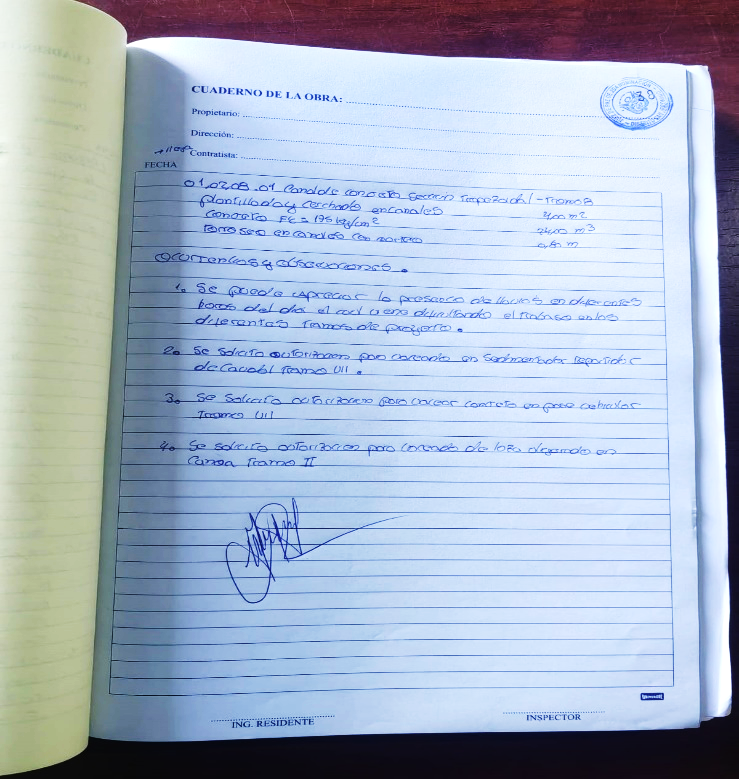 CUADERNO DE LA OBRA:
Propietario:
Dirección:
Contratista:
FECHA
01.02.08.01 Canal de concreto sección Trapezoidal - Tramo
plantillado y cerchado en canales m2
Concreto F'c = 175 kg/cm2 m3
en canales con mortero m
Ocurrencias y observaciones.
1. Se puede apreciar la presencia de lluvias en diferentes
horas del día el cual viene dificultando el trabajo en los
diferentes Tramos de proyecto.
2. Se solicita autorización para en Sedimentador Repartidor
de Caudal Tramo VII.
3. Se solicita autorización para vacear concreto en pase
Tramo VII
4. Se solicita autorización para de loza en
Canoa Tramo II
ING. RESIDENTE
INSPECTOR